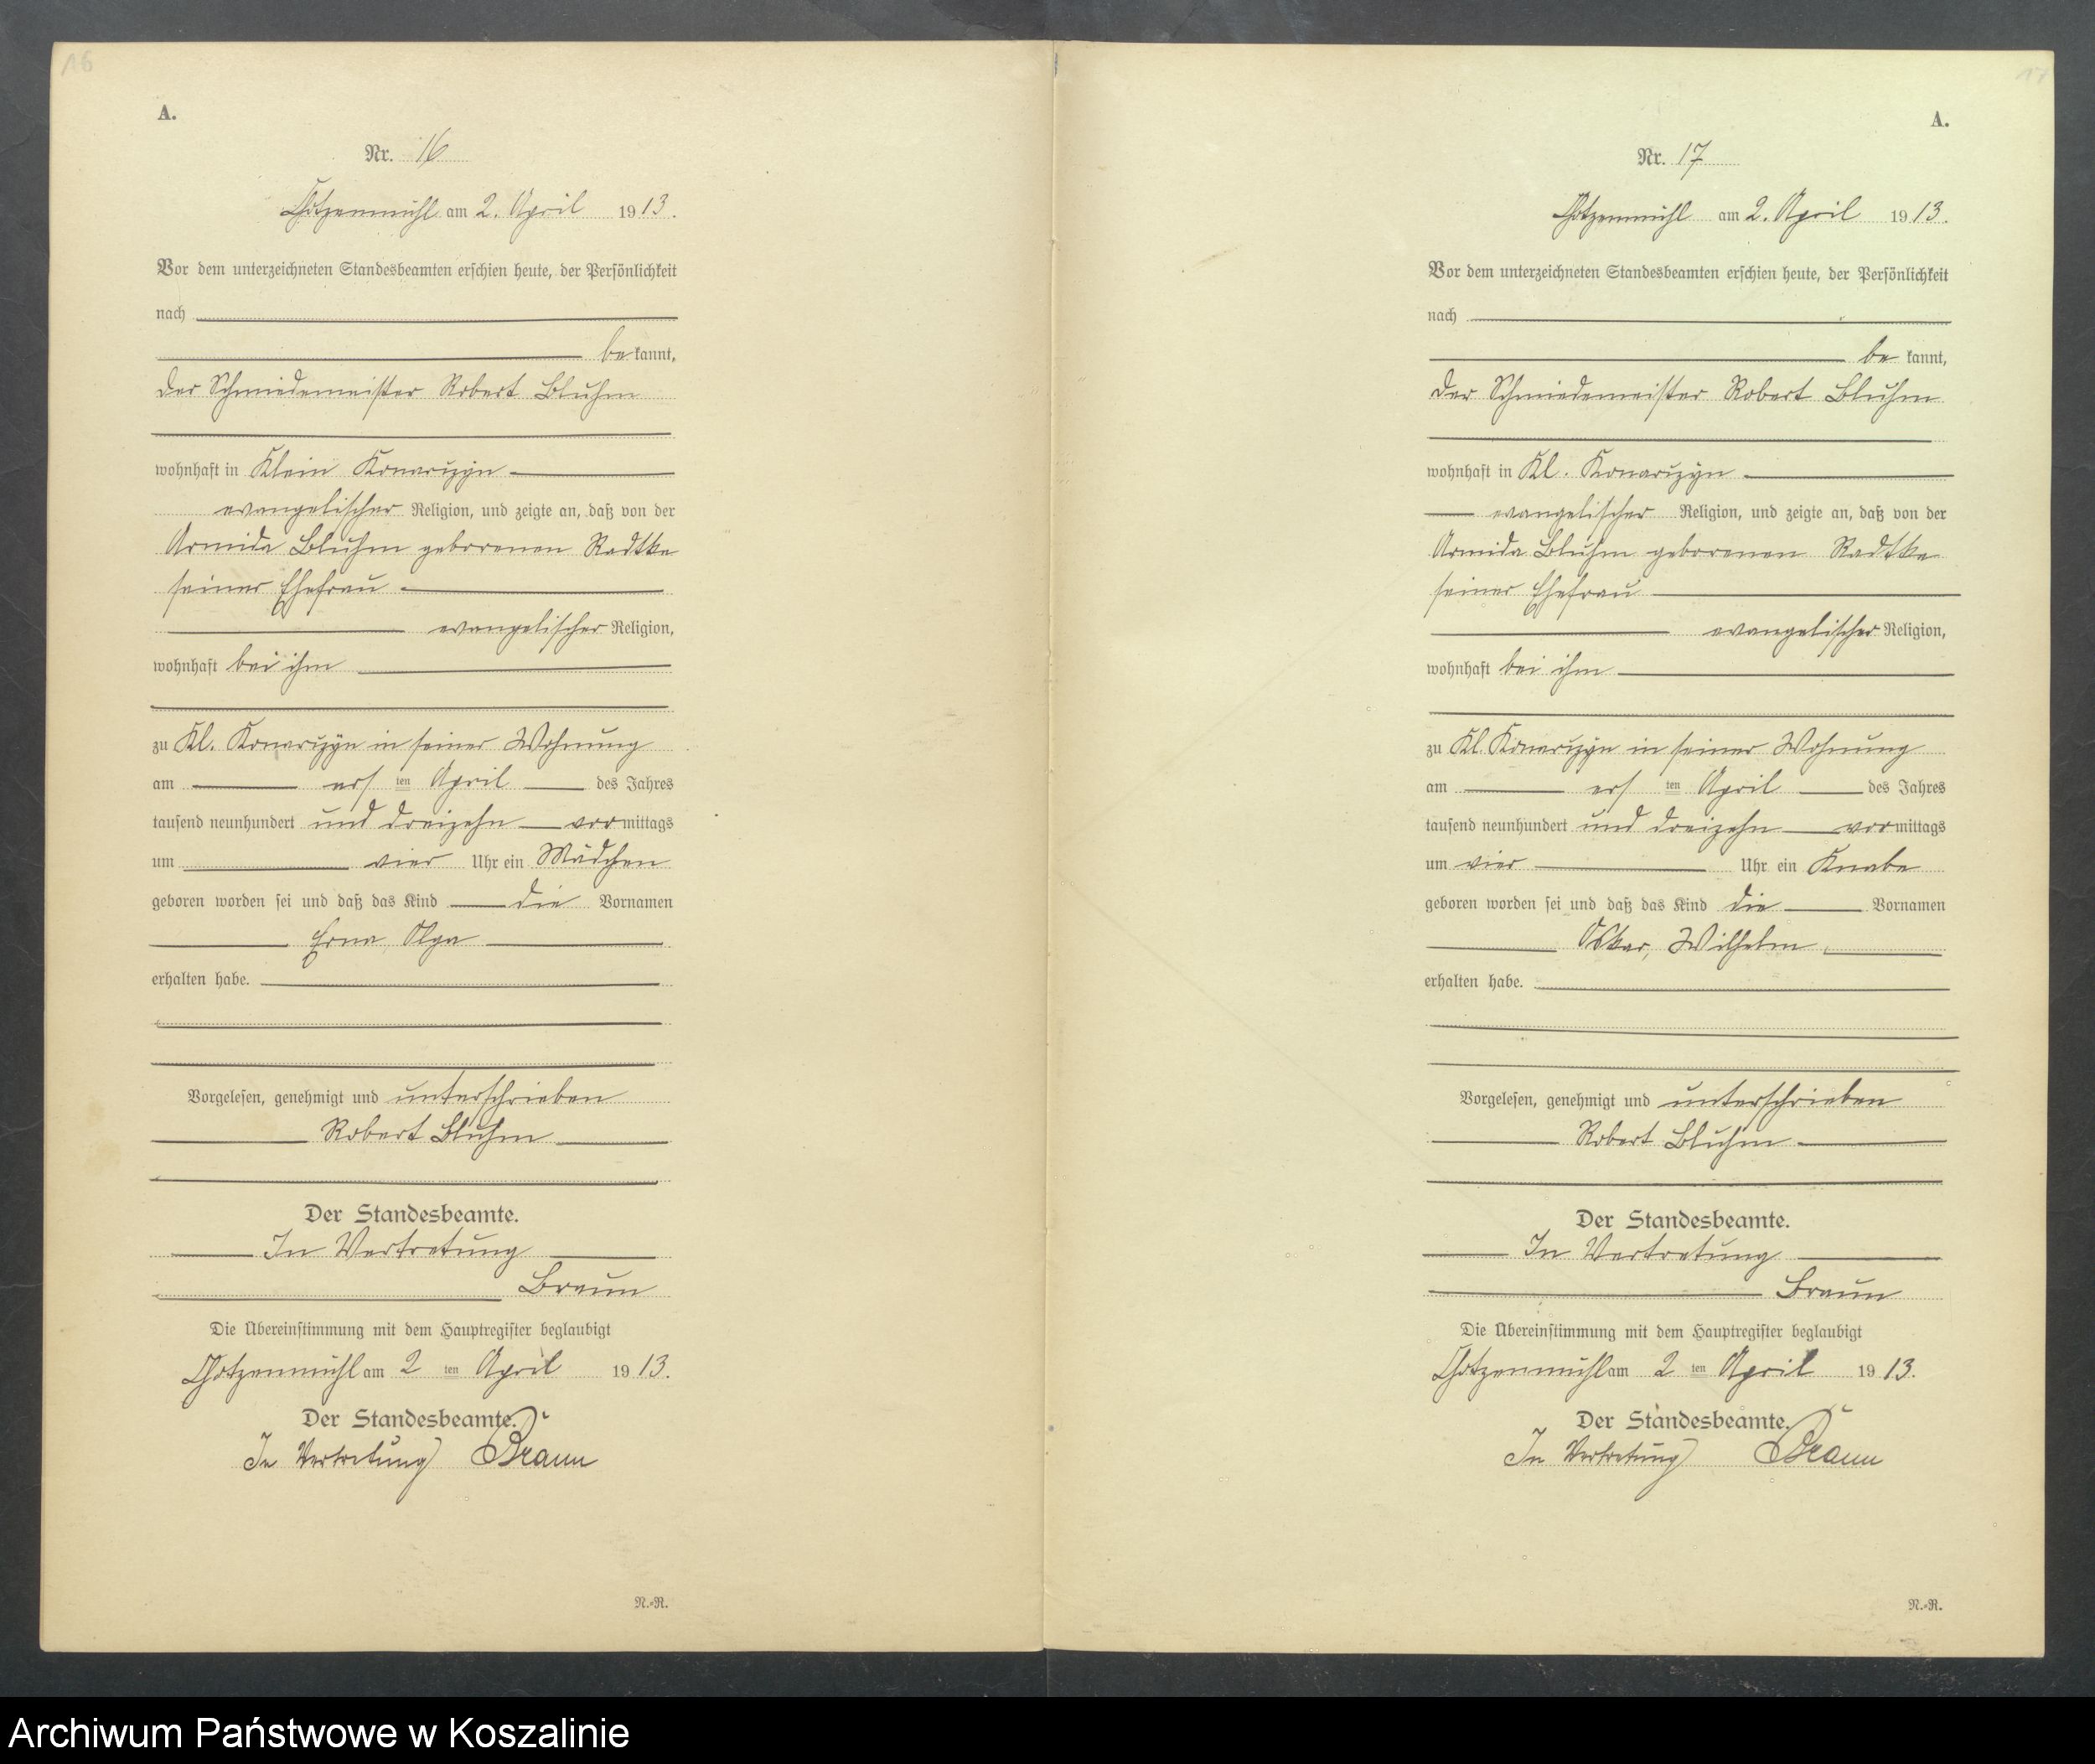 16
A.
Nr. 16
Chotzenmühl am 2. April 1913.
Vor dem unterzeichneten Standesbeamten erschien heute, der Persönlichkeit
nach
be kannt,
der Schmiedemeister Robert Bluhm
wohnhaft in Klein Konarczyn
evangelischer Religion, und zeigte an, daß von der
Armida Bluhm geborenen Radtke
seiner Ehefrau
evangelischer Religion,
wohnhaft bei ihm
zu Kl. Konarczyn in seiner Wohnung
am ersten April des Jahres
tausend neunhundert und dreizehn vormittags
um vier Uhr ein Mädchen
geboren worden sei und daß das Kind die Vornamen
Erna Olga
erhalten habe.
Vorgelesen, genehmigt und unterschrieben
Robert Bluhm
Der Standesbeamte.
In Vertretung
Braun
Die Übereinstimmung mit dem Hauptregister beglaubigt
Chotzenmühl am 2 ten April 1913.
Der Standesbeamte.
In Vertretung Braun
N.-R.
17
A.
Nr. 17
Chotzenmühl am 2. April 1913.
Vor dem unterzeichneten Standesbeamten erschien heute, der Persönlichkeit
nach
be kannt,
der Schmiedemeister Robert Bluhm
wohnhaft in Kl. Konarczyn
evangelischer Religion, und zeigte an, daß von der
Armida Bluhm geborenen Radtke
seiner Ehefrau
evangelischer Religion,
wohnhaft bei ihm
zu Kl. Konarczyn in seiner Wohnung
am ersten April des Jahres
tausend neunhundert und dreizehn vormittags
um vier Uhr ein Knabe
geboren worden sei und daß das Kind die Vornamen
Oskar, Wilhelm
erhalten habe.
Vorgelesen, genehmigt und unterschrieben
Robert Bluhm
Der Standesbeamte.
In Vertretung
Braun
Die Übereinstimmung mit dem Hauptregister beglaubigt
Chotzenmühl am 2 ten April 1913.
Der Standesbeamte.
In Vertretung Braun
N.-R.
Archiwum Państwowe w Koszalinie